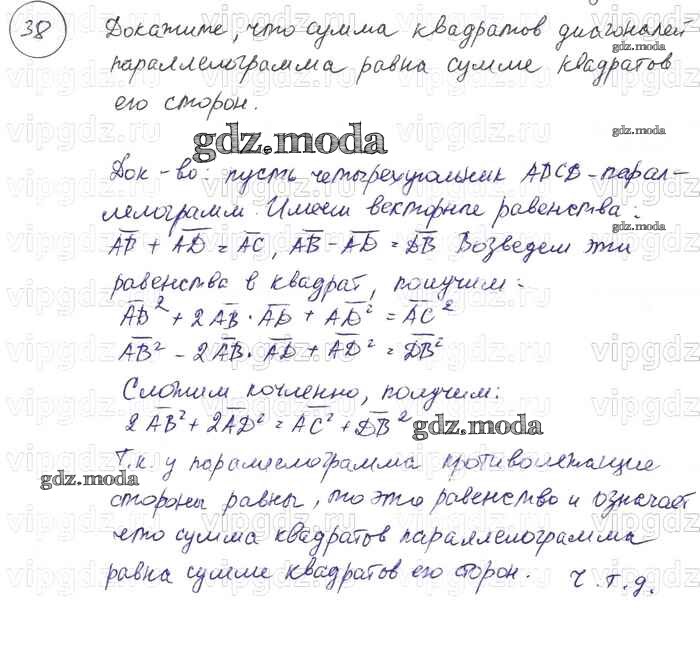 38
Докажите, что сумма квадратов диагоналей
gdz.moda
параллелограмма равна сумме квадратов
его сторон.
gdz.moda
gdz.moda
Док-во: пусть четырехугольник ABCD-парал-
лелограмм. Имеем векторные равенства:
gdz.moda
AB + AD = AC, AB - AD = DB Возведем эти
равенства в квадрат, получим:
AB² + 2AB · AD + AD² = AC²
AB² - 2AB · AD + AD² = DB²
Сложим почленно, получим:
2AB² + 2AD² = AC² + DB²
gdz.moda
Т.к. у параллелограмма противолежащие
gdz.moda
стороны равны, то это равенство и означает
что сумма квадратов параллелограмма
равна сумме квадратов его сторон.
Ч.т.д.